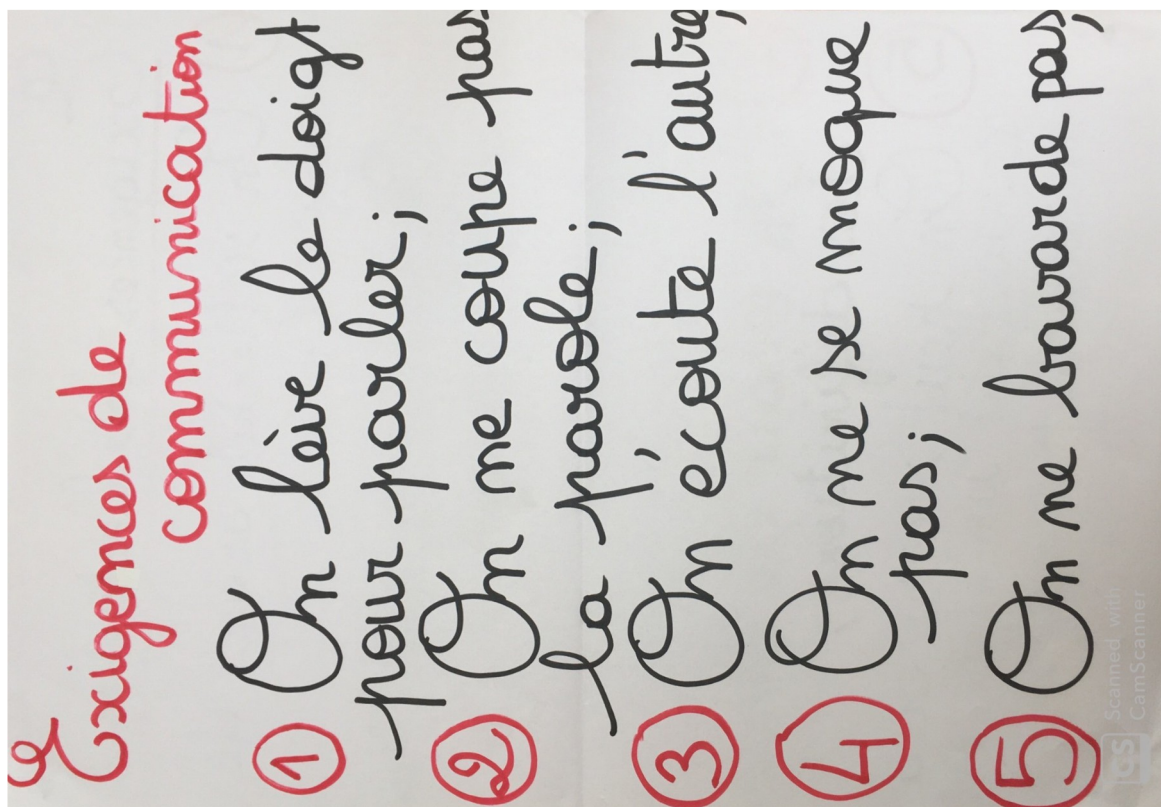 Exigences de
communication
1 On lève le doigt
pour parler;
2 On ne coupe pas
la parole;
3 On écoute l'autre;
4 On ne se moque
pas;
5 On ne bavarde pas;
CS Scanned with
CamScanner